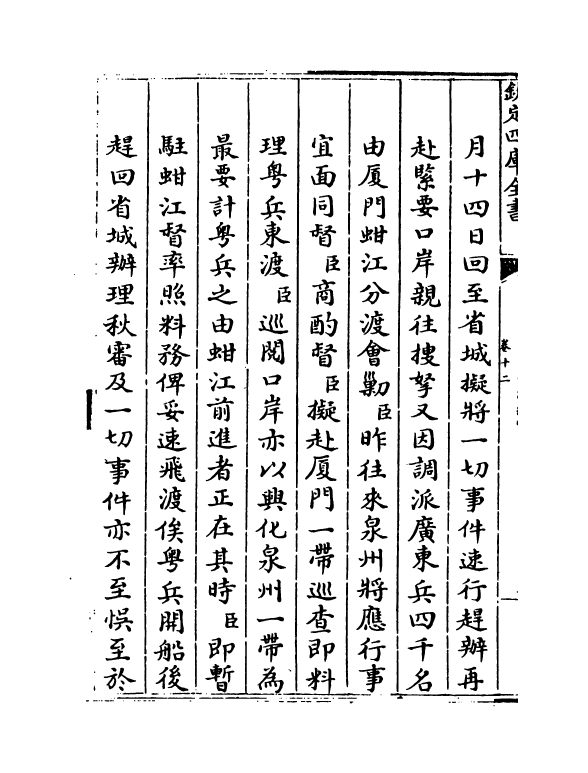 欽定四庫全書
卷十二
月十四日回至省城擬將一切事件速行趕辦再
赴緊要口岸親往搜拏又因調派廣東兵四千名
由厦門蚶江分渡會勦臣昨往來泉州將應行事
宜面同督臣商酌督臣擬赴厦門一帶巡查即料
理粤兵東渡臣巡閱口岸亦以興化泉州一帶為
最要計粤兵之由蚶江前進者正在其時臣即暫
駐蚶江督率照料務俾妥速飛渡俟粤兵開船後
趕回省城辦理秋審及一切事件亦不至悞至於